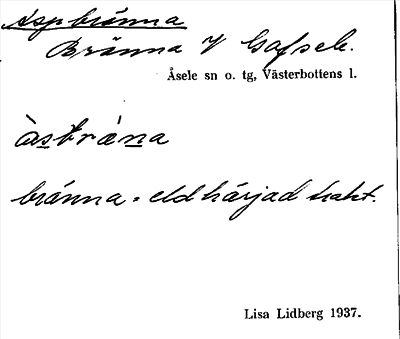 Aspbränna
Bränna V Gafsele.
Åsele sn o. tg, Västerbottens l.
àsbrána
bránna = eldhärjad trakt.
Lisa Lidberg 1937.